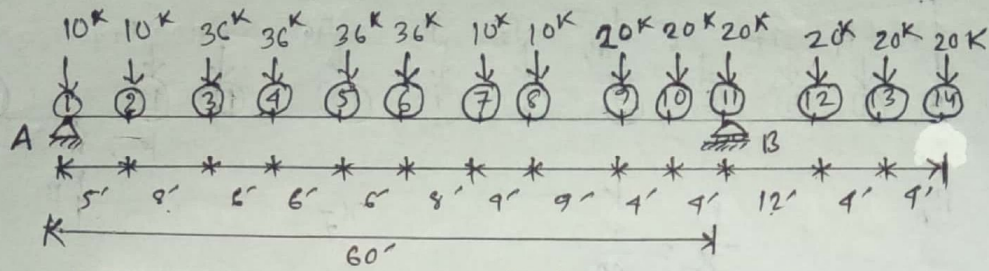 10K 10K 36K 36K 36K 36K 10K 10K 20K 20K 20K 20K 20K 20K
1 2 3 4 5 6 7 8 9 10 11 12 13 14
A B
5' 8' 6' 6' 6' 8' 4' 9' 4' 4' 12' 4' 4'
60'